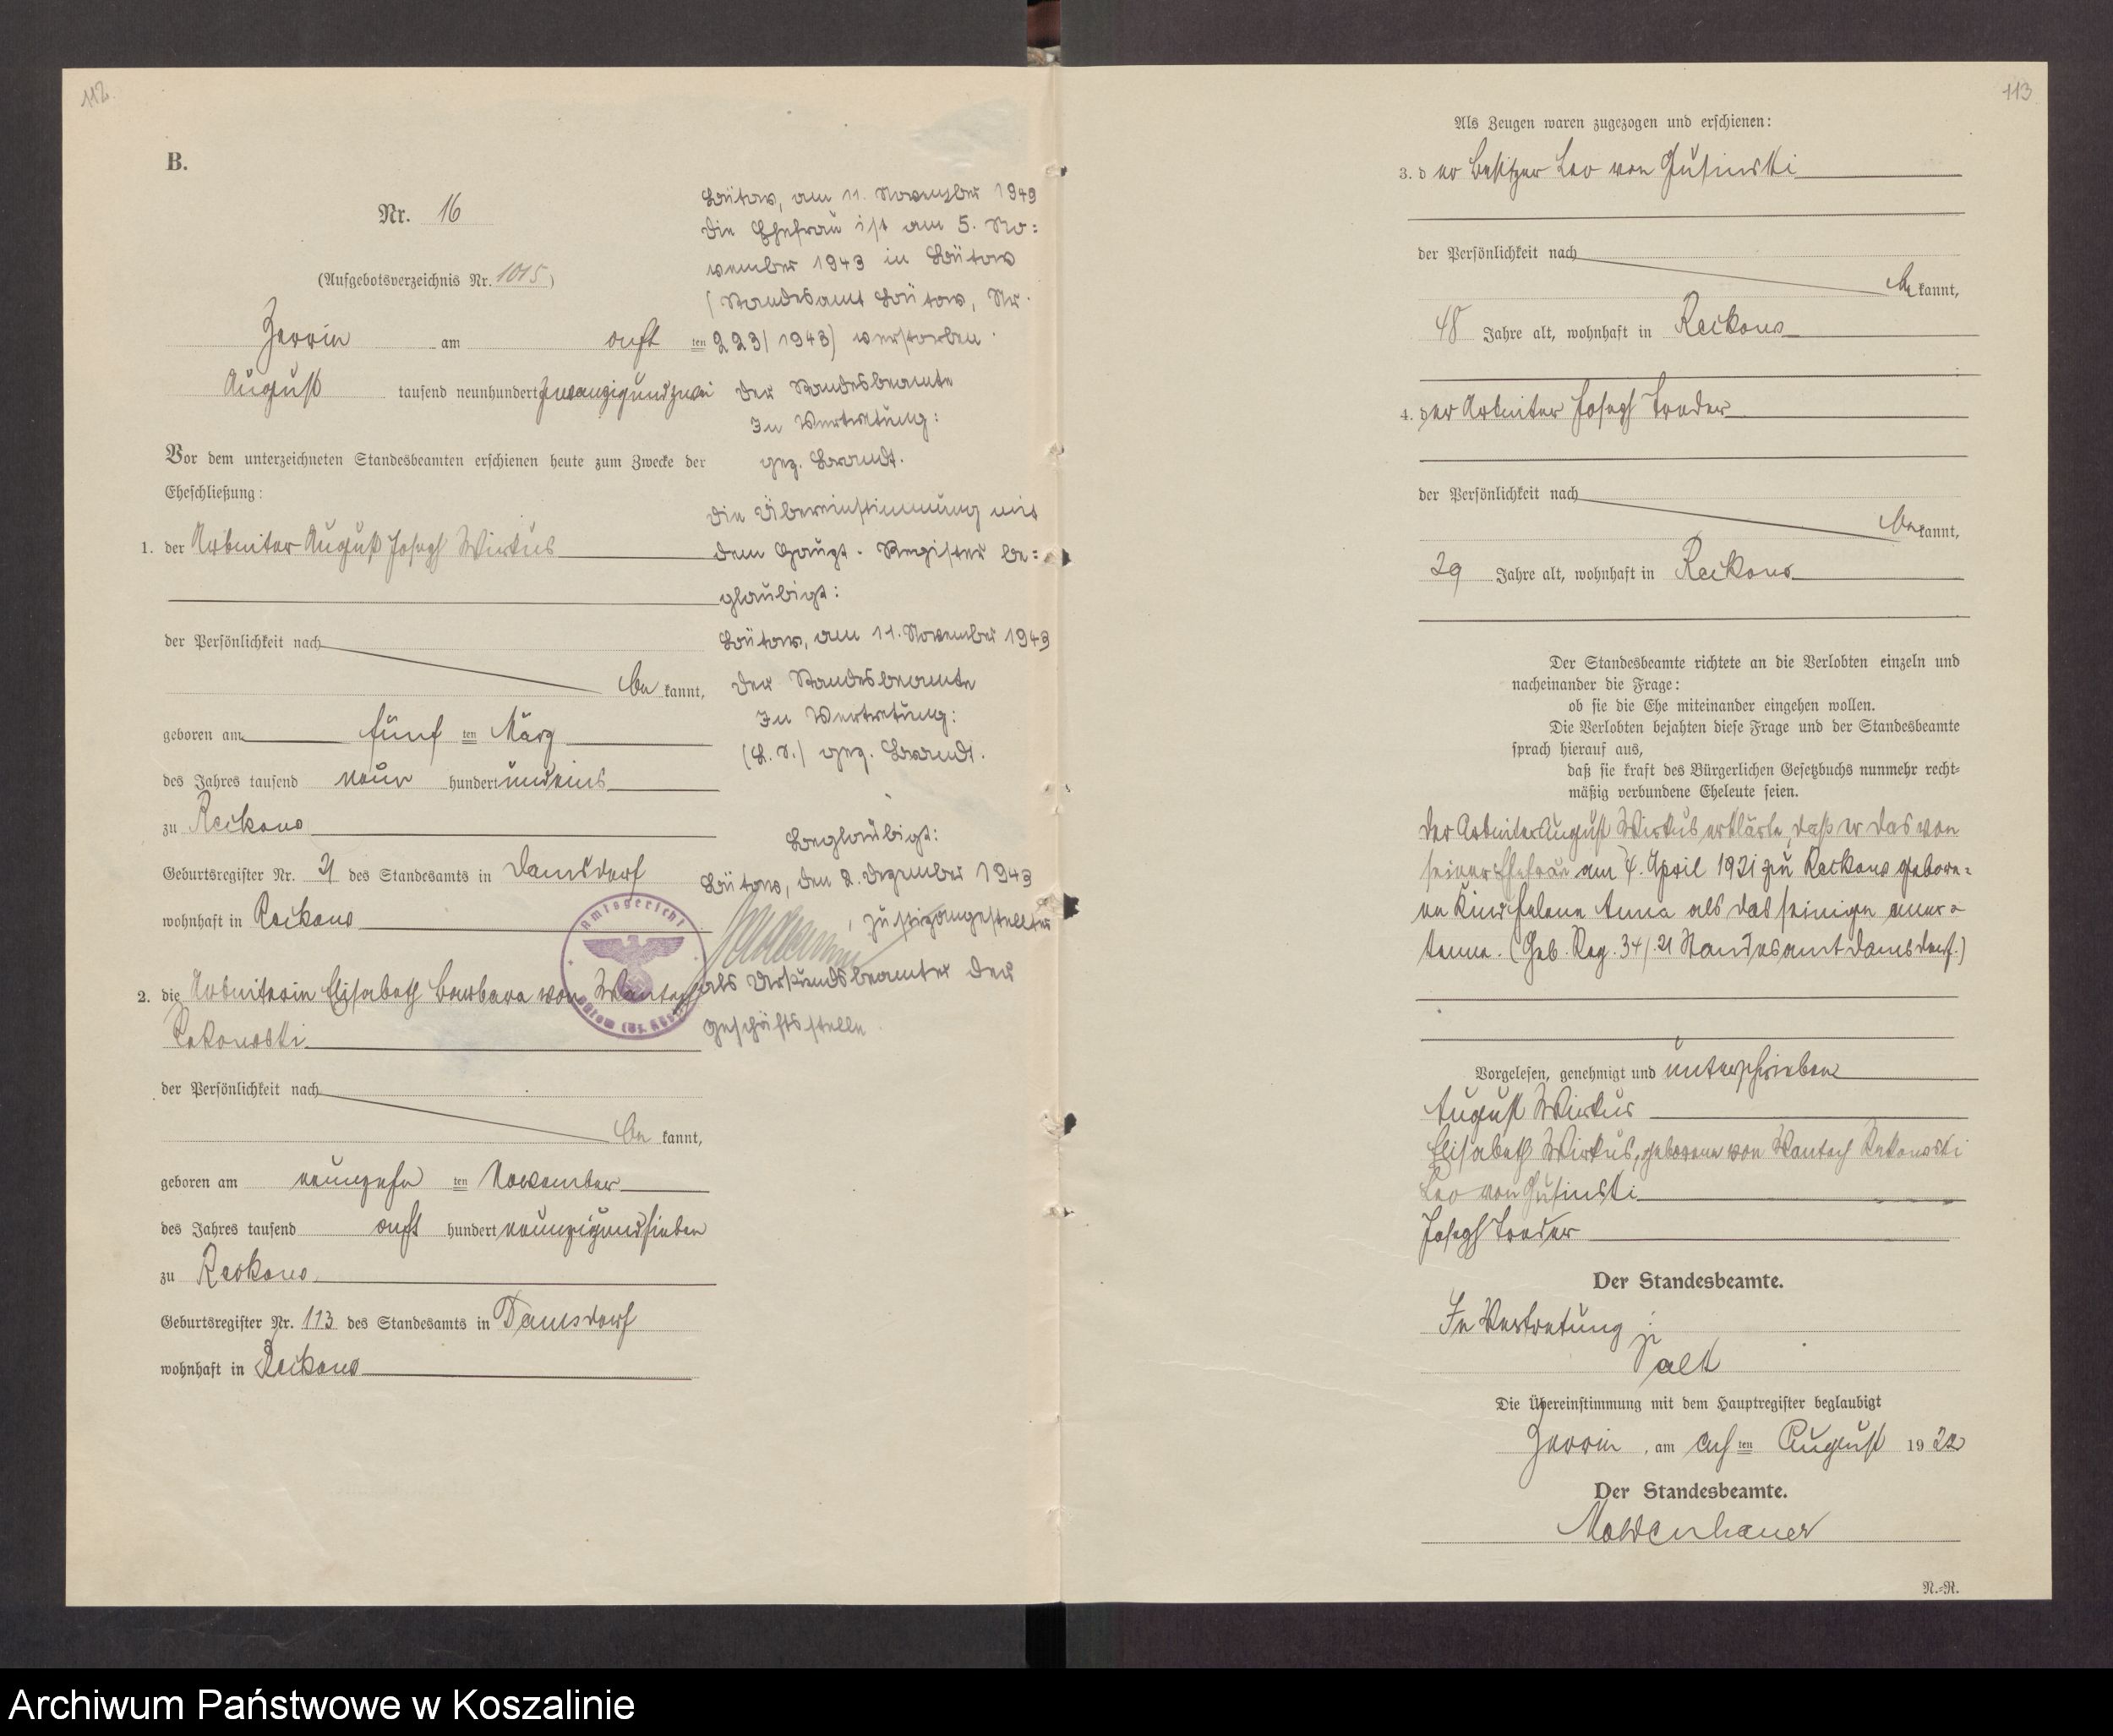 112.
B.
Nr. 16
(Aufgebotsverzeichnis Nr. 1015)
Zerrin am acht ten
August tausend neunhundert zwanzigundzwei
Vor dem unterzeichneten Standesbeamten erschienen heute zum Zwecke der
Eheschließung:
1. der Arbeiter August Josef Wirkus
der Persönlichkeit nach
be kannt,
geboren am fünf ten März
des Jahres tausend neun hundert undeins
zu Reckow
Geburtsregister Nr. 21 des Standesamts in Damsdorf
wohnhaft in Reckow
2. die Arbeiterin Elisabeth Barbara von Wantoch
Rekowski
der Persönlichkeit nach
be kannt,
geboren am neunzehn ten November
des Jahres tausend acht hundert neunzigundsieben
zu Reckow
Geburtsregister Nr. 113 des Standesamts in Damsdorf
wohnhaft in Reckow
Bütow, am 11. November 1943
Die Ehefrau ist am 5. No=
vember 1943 in Bütow
(Standesamt Bütow, Nr.
223/1943) verstorben.
Der Standesbeamte
In Vertretung:
gez. Brandt.
Die Übereinstimmung mit
dem Haupt-Register be=
glaubigt:
Bütow, am 11. November 1943
Der Standesbeamte
In Vertretung:
(L. S.) gez. Brandt.
Beglaubigt:
Bütow, den 2. Dezember 1943
, Justizangestellter
als Urkundsbeamter der
Geschäftsstelle
Amtsgericht
Bütow (Bz. Kösl
113
Als Zeugen waren zugezogen und erschienen:
3. der Besitzer Leo von Gusinski
der Persönlichkeit nach
be kannt,
48 Jahre alt, wohnhaft in Reckow
4. der Arbeiter Josef Treder
der Persönlichkeit nach
be kannt,
29 Jahre alt, wohnhaft in Reckow
Der Standesbeamte richtete an die Verlobten einzeln und
nacheinander die Frage:
ob sie die Ehe miteinander eingehen wollen.
Die Verlobten bejahten diese Frage und der Standesbeamte
sprach hierauf aus,
daß sie kraft des Bürgerlichen Gesetzbuchs nunmehr recht=
mäßig verbundene Eheleute seien.
Der Arbeiter August Wirkus erklärte, daß er das von
seiner Ehefrau am 4. April 1921 zu Reckow gebore=
ne Kind Helene Anna als das seinige aner=
kenne. (Geb. Reg. 34/.21 Standesamt Damsdorf.)
Vorgelesen, genehmigt und unterschrieben
August Wirkus
Elisabeth Wirkus, geborene von Wantoch Rekowski
Leo von Gusinski
Josef Treder
Der Standesbeamte.
In Vertretung
Die Übereinstimmung mit dem Hauptregister beglaubigt
Zerrin, am acht ten August 19 22
Der Standesbeamte.
Moldenhauer
N.=R.
Archiwum Państwowe w Koszalinie